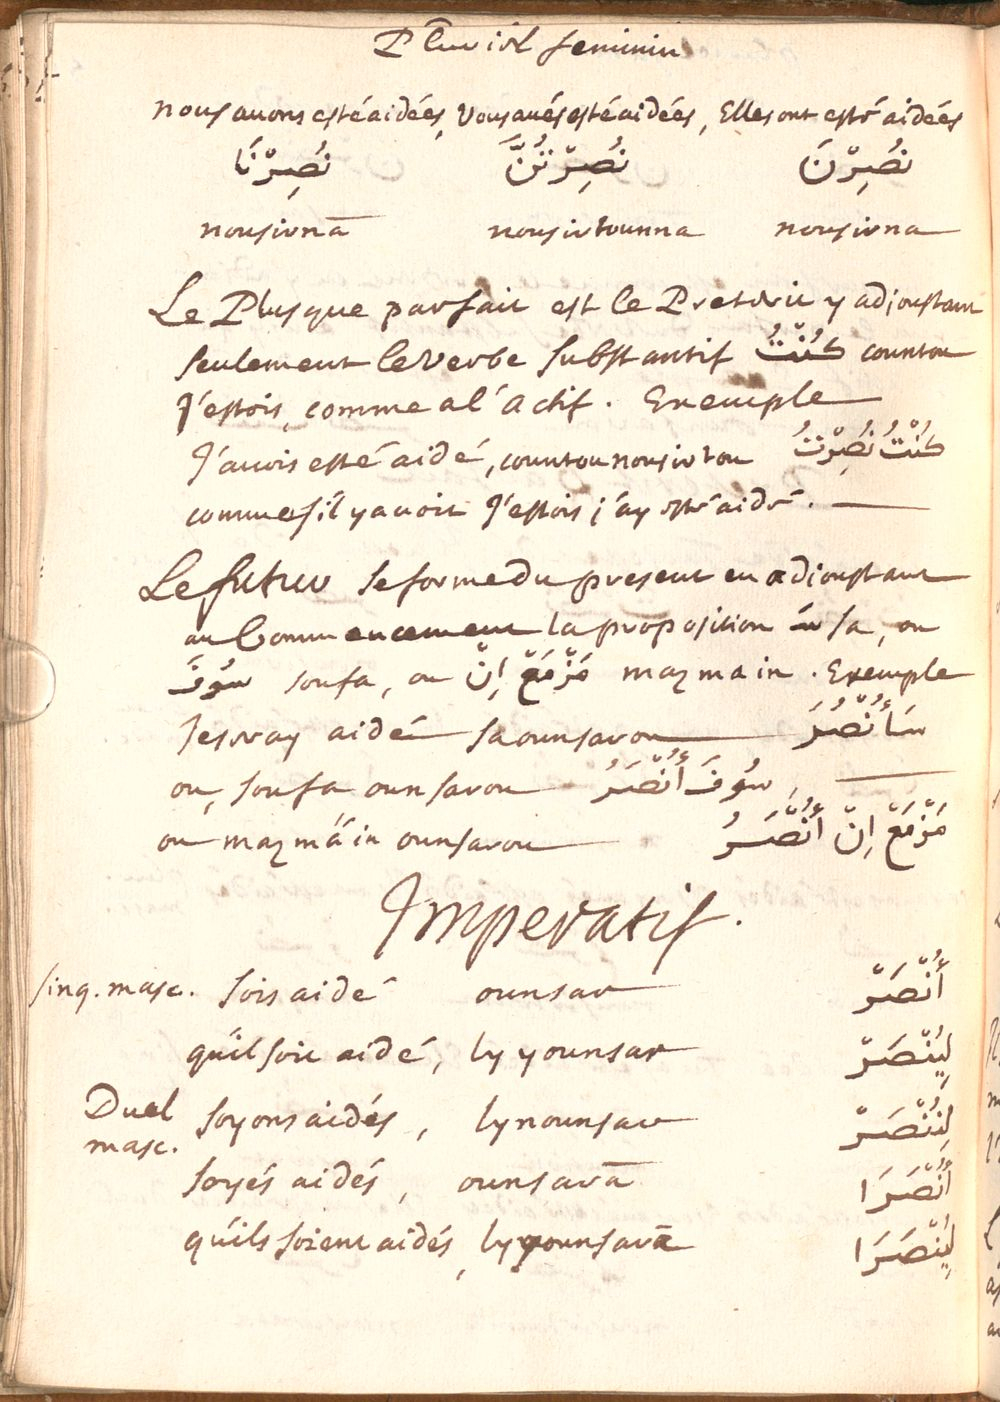 Pluriel feminin
nous auons esté aidées, Vous aués esté aidées, Elles ont esté aidées
نُصِرْنَا نُصِرْتُنَّ نُصِرْنَ
nousirnā nousirtounna nousirna
Le Plusque parfait est le Preterit y adjoustant
seulement le Verbe substantif كُنْتُ countou
J'estois, comme a l'Actif. Exemple
J'auois esté aidé, countou nousirtou كُنْتُ نُصِرْتُ
comme s'il y auoit J'estois j'ay esté aidé.
Le futur se forme du present en adjoustant
au Commencement la proposition سَ sa, ou
سَوُفَ soufa, ou مَزْمَعْ اِنْ mazmain. Exemple
Je seray aidé saounsarou سَأُنْصُرَ
ou, soufa ounsarou سَوُفَ أُنْصَرُ,
ou mazmáin ounsarou مَزْمَعْ اِنْ أُنْصَرُ
Imperatif.
sing. masc. sois aidé ounsar أُنْصَرْ
qu'il soit aidé, ly younsar لِيُنْصَرْ
Duel masc. soyons aidés, lynounsar لِنُنْصَرْ
soyés aidés, ounsarā أُنْصَرَا
qu'ils soient aidés, lyyounsarā لِيُنْصَرَا